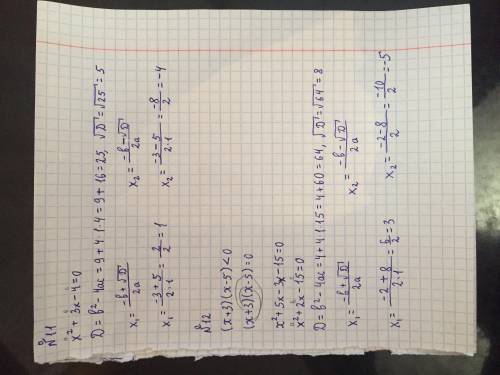 №11
x²+3x-4=0
D=b²-4ac=9+4·1·4=9+16=25, √D=√25=5
x₁=(-b+√D)/2a  x₂=(-b-√D)/2a
x₁=(-3+5)/(2·1)=2/2=1  x₂=(-3-5)/(2·1)=-8/2=-4
№12
(x+3)(x-5)<0
(x+3)(x-5)=0
x²+5x-3x-15=0
x²+2x-15=0
D=b²-4ac=4+4·1·15=4+60=64, √D=√64=8
x₁=(-b+√D)/2a  x₂=(-b-√D)/2a
x₁=(-2+8)/(2·1)=6/2=3  x₂=(-2-8)/2=-10/2=-5